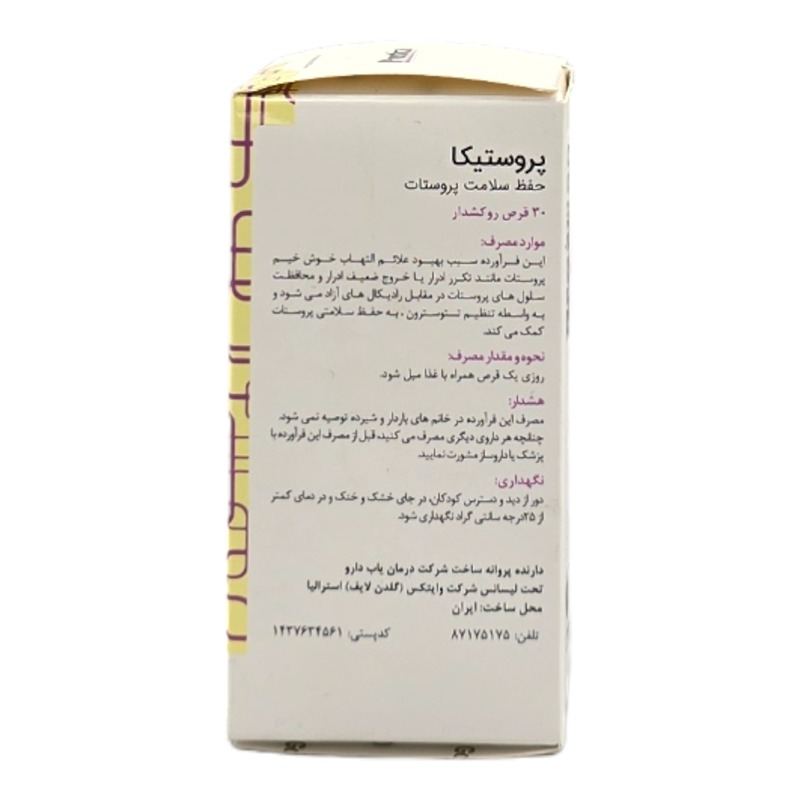 پروستیکا
حفظ سلامت پروستات
۳۰ قرص روکشدار
موارد مصرف:
این فرآورده سبب بهبود علائم التهاب خوش خیم
پروستات مانند تکرر ادرار یا خروج ضعیف ادرار و محافظت
سلول های پروستات در مقابل رادیکال های آزاد می شود و
به واسطه تنظیم تستوسترون ، به حفظ سلامتی پروستات
کمک می کند.
نحوه و مقدار مصرف:
روزی یک قرص همراه با غذا میل شود.
هشدار:
مصرف این فرآورده در خانم های باردار و شیرده توصیه نمی شود.
چنانچه هر داروی دیگری مصرف می کنید، قبل از مصرف این فرآورده با
پزشک یا داروساز مشورت نمایید.
نگهداری:
دور از دید و دسترس کودکان، در جای خشک و خنک و در دمای کمتر
از ۲۵درجه سانتی گراد نگهداری شود.
دارنده پروانه ساخت شرکت درمان یاب دارو
تحت لیسانس شرکت وایتکس (گلدن لایف) استرالیا
محل ساخت: ایران
تلفن: ۸۷۱۷۵۱۷۵ کدپستی: ۱۴۳۷۶۳۴۵۶۱